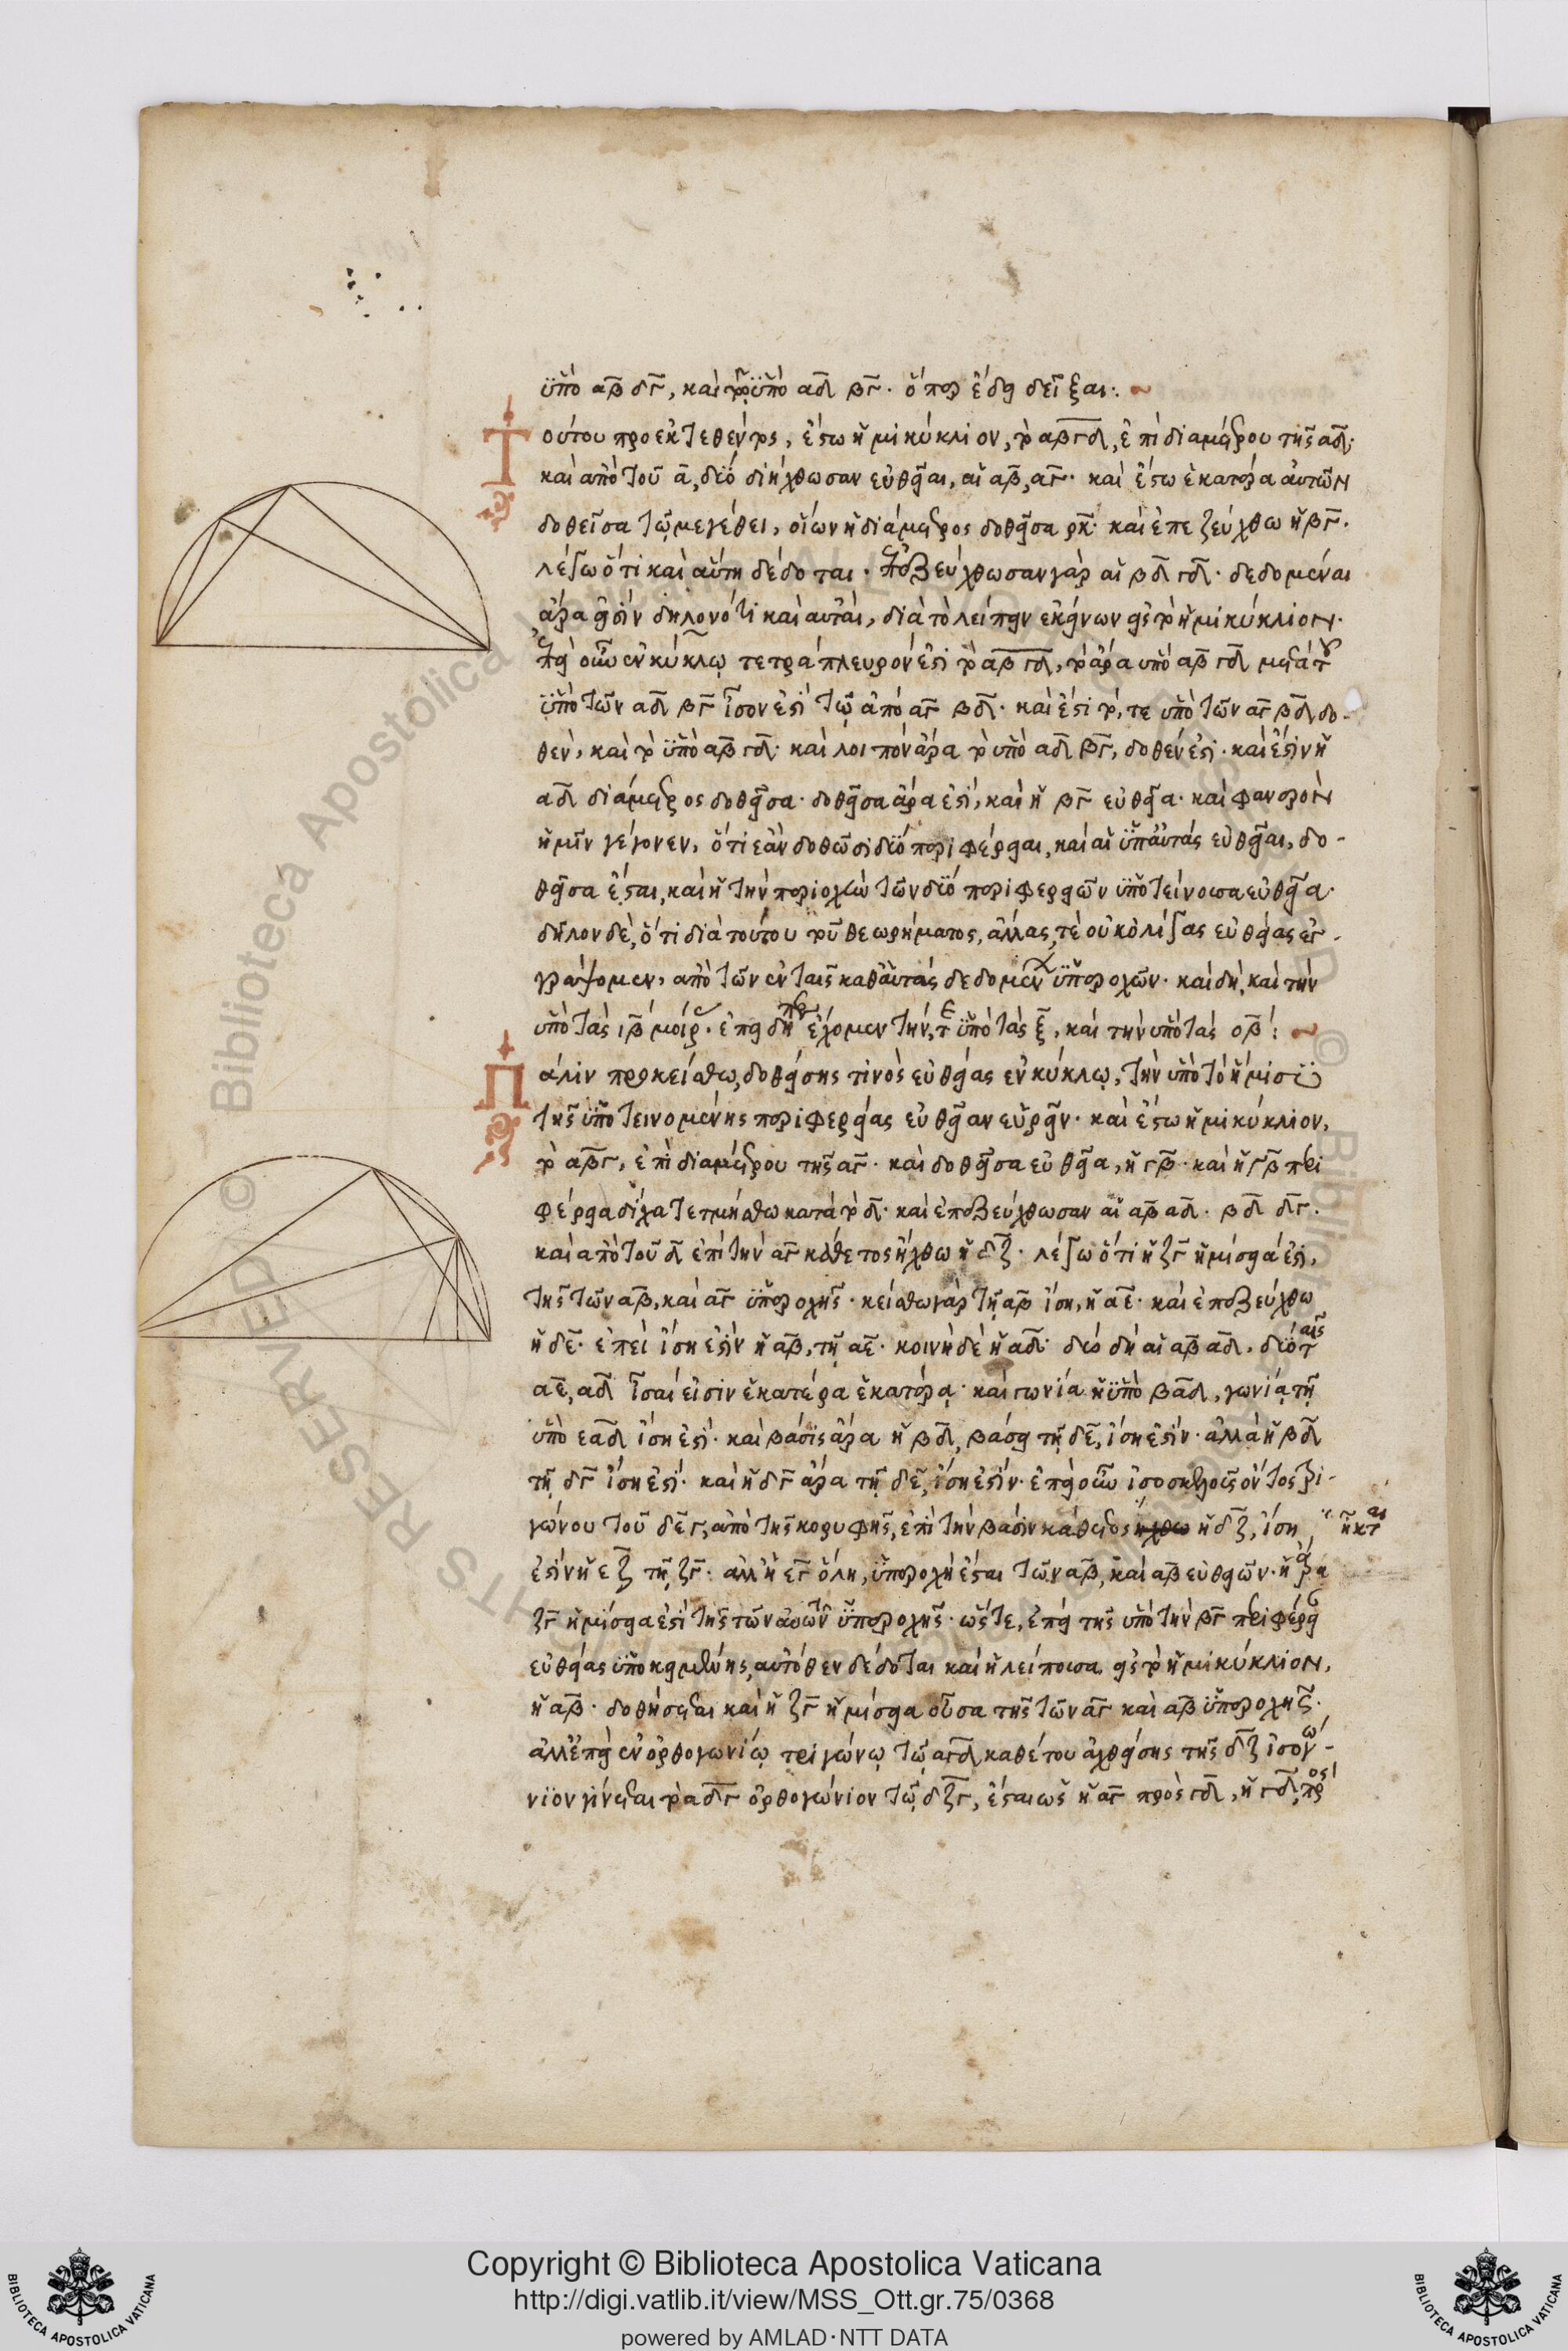 ὑπὸ αβ δγ, καὶ τῷ ὑπὸ αδ βγ· ὅπερ ἔδει δεῖξαι:
Τούτου προεκτεθέντος, ἔστω ἡμικύκλιον, τὸ αβγδ, ἐπὶ διαμέτρου τῆς αδ·
καὶ ἀπὸ τοῦ α, δύο διήχθωσαν εὐθεῖαι, αἱ αβ, αγ· καὶ ἔστω ἑκατέρα αὐτῶν
δοθεῖσα τῷ μεγέθει, οἵων ἡ διάμετρος δοθεῖσα ρκ· καὶ ἐπεζεύχθω ἡ βγ.
λέγω ὅτι καὶ αὕτη δέδοται· ἐπεζεύχθωσαν γὰρ αἱ βδ γδ· δεδομέναι
ἄρα εἰσὶν δηλονότι καὶ αὗται, διὰ τὸ λείπειν ἐκείνων εἰς τὸ ἡμικύκλιον.
ἐπεὶ οὖν ἐν κύκλῳ τετράπλευρόν ἐστι τὸ αβγδ, τὸ ἄρα ὑπὸ αβ γδ μετὰ τοῦ
ὑπὸ τῶν αδ βγ ἴσον ἐστὶ τῷ ἀπὸ αγ βδ· καὶ ἔστι τό, τε ὑπὸ τῶν αγ βδ δο-
θέν, καὶ τὸ ὑπὸ αβ γδ· καὶ λοιπὸν ἄρα τὸ ὑπὸ αδ βγ, δοθέν ἐστι· καὶ ἔστιν ἡ
αδ διάμετρος δοθεῖσα· δοθεῖσα ἄρα ἐστὶ, καὶ ἡ βγ εὐθεῖα· καὶ φανερὸν
ἡμῖν γέγονεν, ὅτι ἐὰν δοθῶσι δύο περιφέρειαι, καὶ αἱ ὑπ' αὐτὰς εὐθεῖαι, δο-
θεῖσα ἔσται, καὶ ἡ τὴν περιοχὴν τῶν δύο περιφερειῶν ὑποτείνουσα εὐθεῖα·
δῆλον δὲ, ὅτι διὰ τούτου τοῦ θεωρήματος, ἄλλας τε οὐκ ὀλίγας εὐθείας ἐγ-
γράψομεν, ἀπὸ τῶν ἐν ταῖς καθ' αὑτὰς δεδομένων ὑπεροχῶν· καὶ δὴ, καὶ τὴν
ὑπὸ τὰς ιβ μοίρας· ἐπειδήπερ ἔχομεν τήν, τε ὑπὸ τὰς ξ, καὶ τὴν ὑπὸ τὰς οβ:
Πάλιν προκείσθω, δοθείσης τινὸς εὐθείας ἐν κύκλῳ, τὴν ὑπὸ τὸ ἥμισυ
τῆς ὑποτεινομένης περιφερείας εὐθεῖαν εὑρεῖν· καὶ ἔστω ἡμικύκλιον,
τὸ αβγ, ἐπὶ διαμέτρου τῆς αγ· καὶ δοθεῖσα εὐθεῖα, ἡ γβ· καὶ ἡ γβ περι
φέρεια δίχα τετμήσθω κατὰ τὸ δ· καὶ ἐπεζεύχθωσαν αἱ αβ αδ. βδ δγ.
καὶ ἀπὸ τοῦ δ ἐπὶ τὴν αγ κάθετος ἤχθω ἡ δζ· λέγω ὅτι ἡ ζγ ἡμίσεια ἐστι,
τῆς τῶν αβ, καὶ αγ ὑπεροχῆς· κείσθω γὰρ τῇ αβ ἴση, ἡ αε· καὶ ἐπεζεύχθω
ἡ δε· ἐπεὶ ἴση ἐστὶν ἡ αβ, τῇ αε· κοινὴ δὲ ἡ αδ· δύο δὴ αἱ αβ αδ, δύο ταῖς
αε, αδ ἴσαι εἰσὶν ἑκατέρα ἑκατέρᾳ· καὶ γωνία ἡ ὑπὸ βαδ, γωνίᾳ τῇ
ὑπὸ εαδ ἴση ἐστί· καὶ βάσις ἄρα ἡ βδ, βάσει τῇ δε, ἴση ἐστίν· ἀλλὰ ἡ βδ
τῇ δγ ἴση ἐστί· καὶ ἡ δγ ἄρα τῇ δε, ἴση ἐστίν· ἐπεὶ οὖν ἰσοσκελοῦς ὄντος τρι-
γώνου τοῦ δεγ, ἀπὸ τῆς κορυφῆς, ἐπὶ τὴν βάσιν κάθετος ἤχθω ἡ δζ, ἴση ἦκται
ἐστὶν ἡ εζ τῇ ζγ· ἀλλ' ἡ εγ ὅλη, ὑπεροχή ἐσται τῶν αβ, καὶ αβ εὐθειῶν· ἡ ἄρα
ζγ ἡμίσεια ἐστὶ τῆς τῶν αὐτῶν ὑπεροχῆς· ὥστε, ἐπεὶ τῆς ὑπὸ τὴν βγ περιφέρειαν
εὐθείας ὑποκειμένης, αὐτόθεν δέδοται καὶ ἡ λείπουσα εἰς τὸ ἡμικύκλιον,
ἡ αβ· δοθήσεται καὶ ἡ ζγ ἡμίσεια οὖσα τῆς τῶν αγ καὶ αβ ὑπεροχῆς.
ἀλλ' ἐπεὶ ἐν ὀρθογωνίῳ τριγώνῳ τῷ αγδ καθέτου ἀχθείσης τῆς δζ ἰσογώ-
νιον γίνεται τὸ αδγ ὀρθογώνιον τῷ δζγ, ἔσται ὡς ἡ αγ πρὸς γδ, ἡ γδ πρὸς
Copyright © Biblioteca Apostolica Vaticana
http://digi.vatlib.it/view/MSS_Ott.gr.75/0368
powered by AMLAD·NTT DATA
BIBLIOTECA APOSTOLICA VATICANA
BIBLIOTECA APOSTOLICA VATICANA